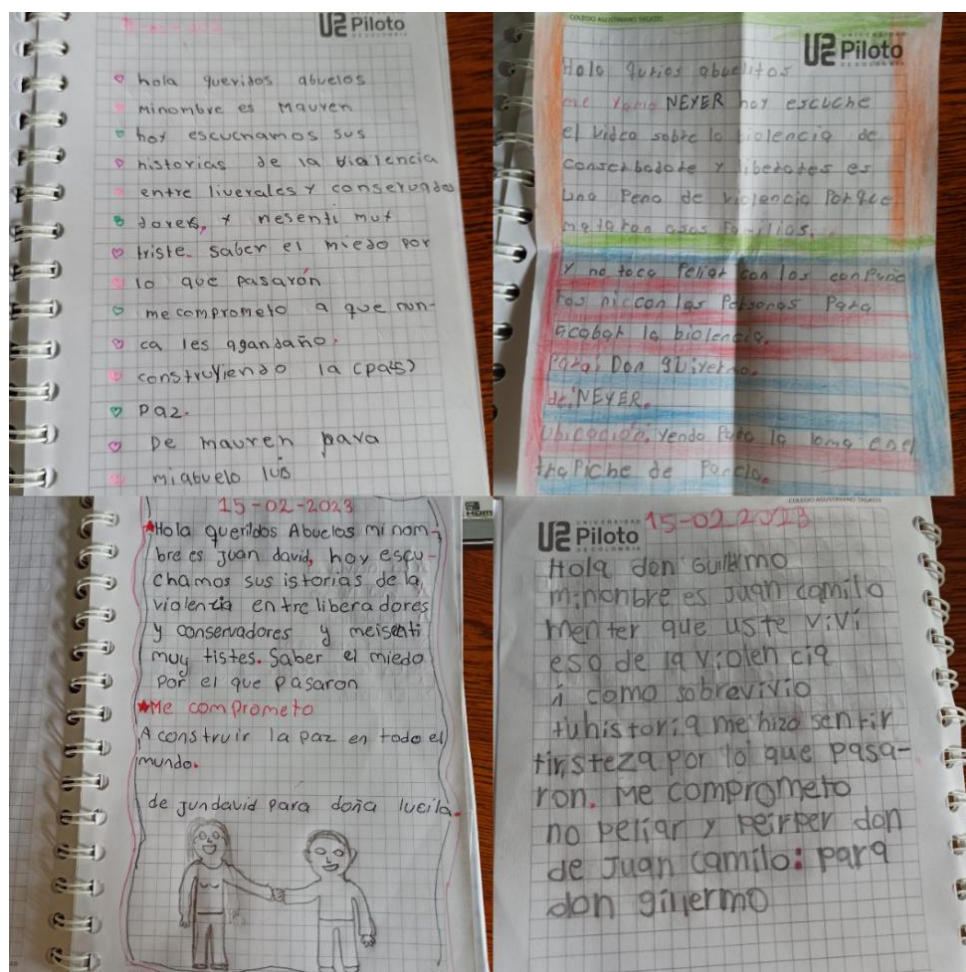 UP Piloto
DE COLOMBIA
hola queridos abuelos
minombre es Mauren
hoy escuchamos sus
historias de la violencia
entre liverales y conservado
dores, y mesenti muy
triste. saber el miedo por
lo que pasarón
me comprometo a que nun-
ca les agandaño.
construyendo la (país)
paz.
De mauren para
miabuelo luis
COLEGIO AGUSTINIANO TAGASTE
UNIVERSIDAD
UP Piloto
Hola qurios abuelitos
me yamo NEYER hoy escuche
el video sobre la violencia de
conserbadote y liberotes es
una Pena de violencia Porque
mataron asos familias.
y no toca Peliar con los conpañe
ros niccon las Personas Para
acabar la biolencia.
Para: Don gbiyermo.
de: NEYER.
ubicación, Yendo Para la loma en el
trapiche de Panela.
15-02-2023
Hola querildos Abuelos mi nom-
bre es Juan david, hoy escu-
chamos sus istorias de la
violencia entre libera dores
y conservadores y meisenti
muy tistes. Saber el miedo
Por el que pasaron
Me comprometo
A construir la paz en todo el
mundo.
de Jundavid para doña lucila.
UNIVERSIDAD
UP Piloto
DE COLOMBIA
15-02-2023
Hola don Guillermo
minonbre es Juan camilo
menter que uste vivi
eso de la violencia
i como sobrevivio
tuhistoria me hizo sentir
tirsteza por lo que pasa-
ron. Me comprometo
no peliar y peirper don
de Juan camilo: para
don gillermo